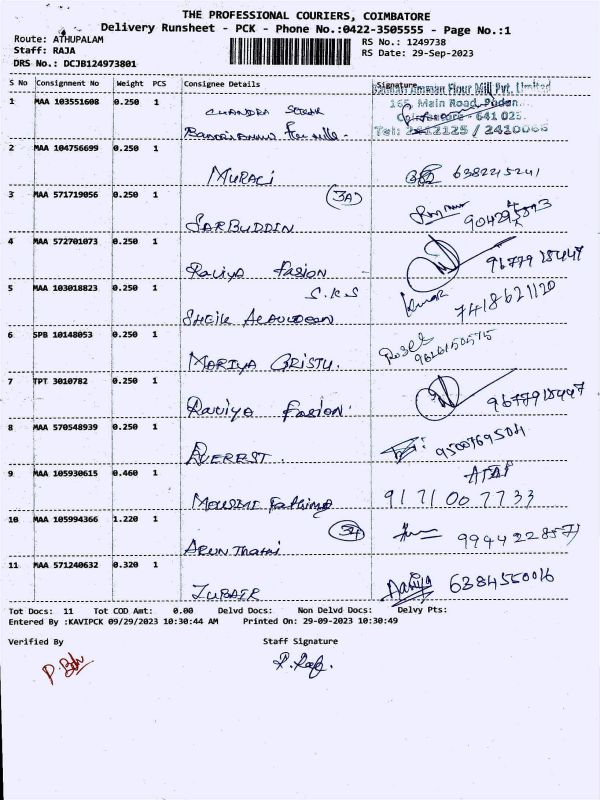 THE PROFESSIONAL COURIERS, COIMBATORE
Delivery Runsheet - PCK - Phone No.:0422-3505555 - Page No.:1
Route: ATHUPALAM
RS No.: 1249738
Staff: RAJA
RS Date: 29-Sep-2023
DRS No.: DCJB124973801
S No Consignment No Weight PCS Consignee Details Signature
Amman Flour Mill Pvt. Limited
1 MAA 103551608 0.250 1
165, Main Road, Pudan
CHANDRA
Coimbatore - 641 023.
Tel: 2412125 / 2410066
2 MAA 104756699 0.250 1
MURALI 6382245241
3 MAA 571719056 0.250 1 (3A)
SARBUDDIN
4 MAA 572701073 0.250 1
Raviya Fasion 9677918447
5 MAA 103018823 0.250 1 S.K.S
SHEIK ALAUDEEN Kumar 7418621120
6 SPB 10148053 0.250 1
MARIYA CRISTU.
7 TPT 3010782 0.250 1
Raviya Fasion. 9677918447
8 MAA 570548939 0.250 1
EVEREST. 9500769504
9 MAA 105930615 0.460 1
Fathima 9171007733
10 MAA 105994366 1.220 1 (34)
ARUN Tharni 9944228571
11 MAA 571240632 0.320 1
ZUBAIR 6384560016
Tot Docs: 11 Tot COD Amt: 0.00 Delvd Docs: Non Delvd Docs: Delvy Pts:
Entered By :KAVIPCK 09/29/2023 10:30:44 AM Printed On: 29-09-2023 10:30:49
Verified By Staff Signature